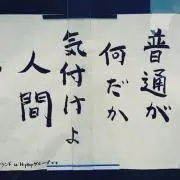 普通が
何だか
気付けよ
人間